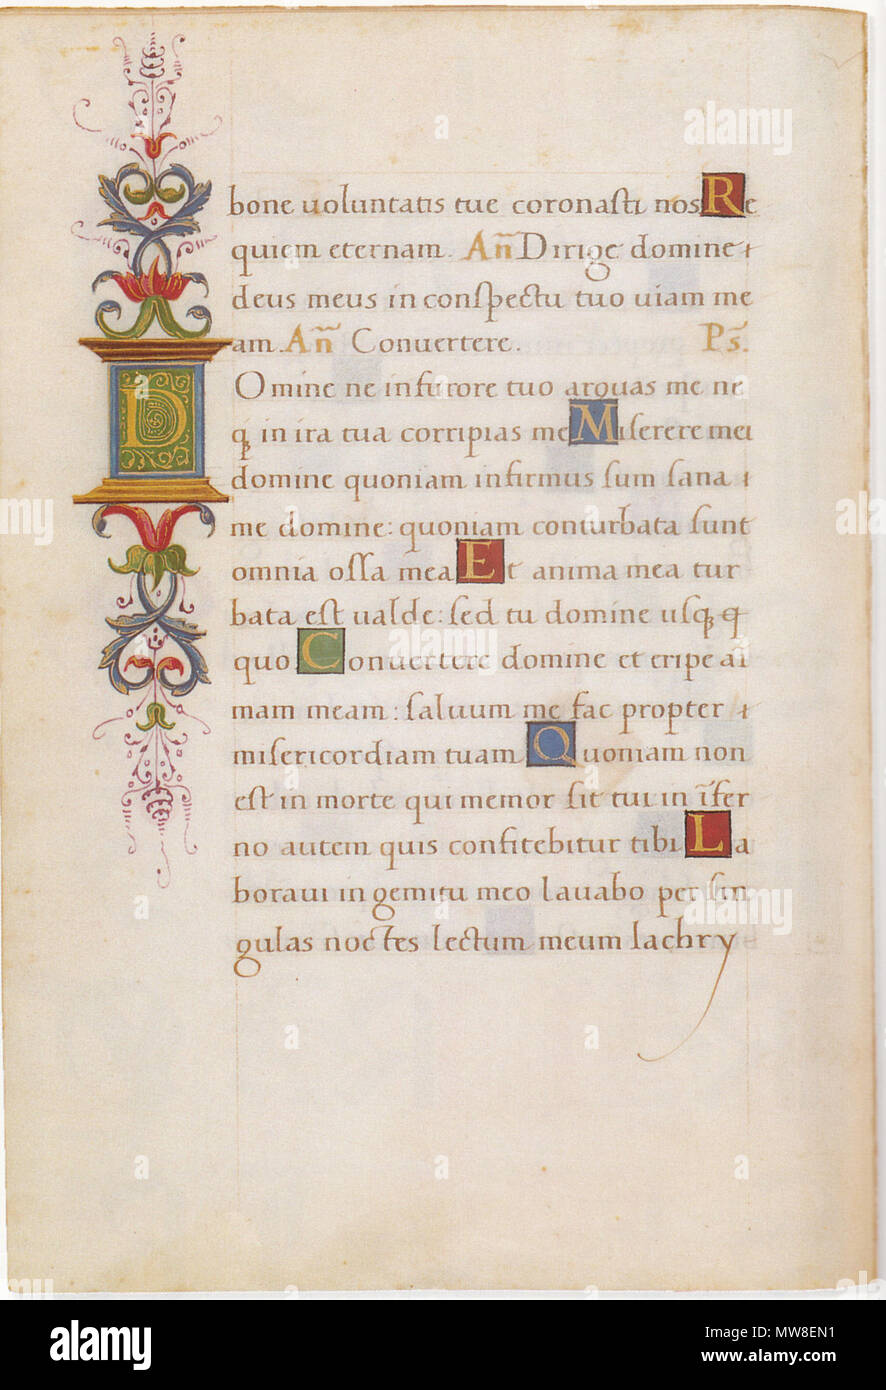 bone uoluntatis tue coronasti nos Re
quiem eternam. Añ Dirige domine
deus meus in conspectu tuo uiam me
am. Añ Conuertere. Ps̃.
Domine ne in furore tuo arguas me ne
q in ira tua corripias me Miserere mei
domine quoniam infirmus sum sana
me domine: quoniam conturbata sunt
omnia ossa mea Et anima mea tur
bata est ualde: sed tu domine usq q
quo Conuertere domine et eripe ai
mam meam: saluum me fac propter
misericordiam tuam Quoniam non
est in morte qui memor sit tui in ĩfer
no autem quis confitebitur tibi La
boraui in gemitu meo lauabo per sin
gulas noctes lectum meum lachry
alamy
Image ID: MW8EN1
www.alamy.com